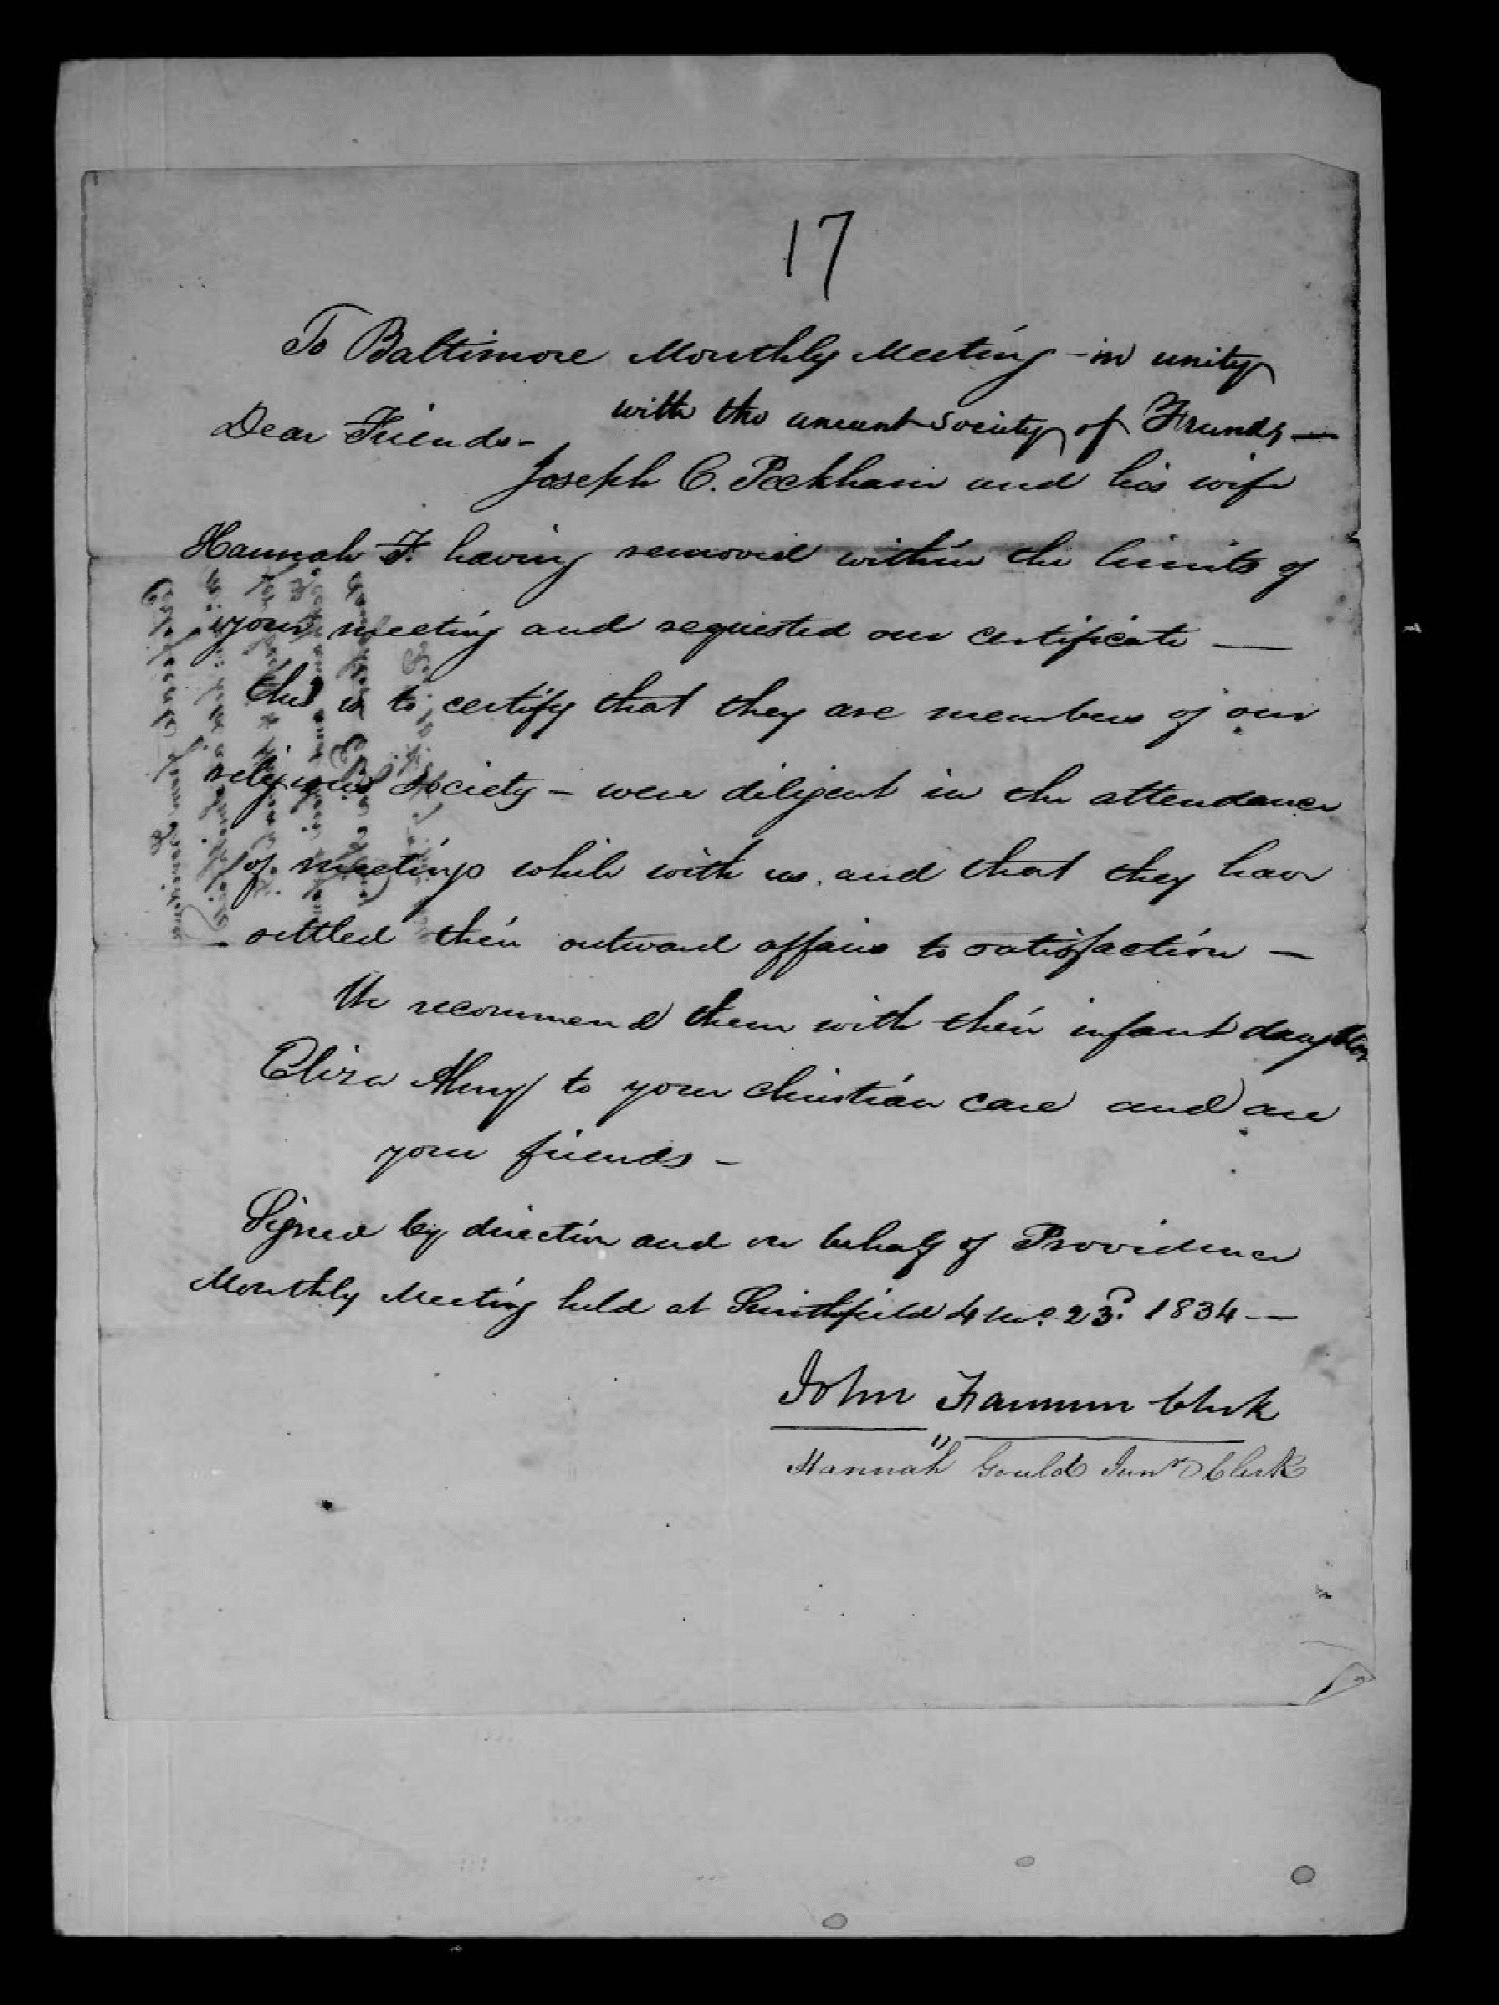 17
To Baltimore Monthly Meeting - in unity
with the ancient Society of Friends —
Dear Friends -
Joseph C. Peckham and his wife
Hannah F. having removed within the limits of
your meeting and requested our certificate —
this is to certify that they are members of our
religious Society - were diligent in the attendance
of meetings while with us. and that they have
settled their outward affairs to satisfaction —
We recommend them with their infant daughter
Eliza Almy to your christian care and are
your friends -
Signed by direction and on behalf of Providence
Monthly Meeting held at Smithfield 4 mo. 23d. 1834 —
John Farnum Clerk
Hannah Gould Junr Clerk